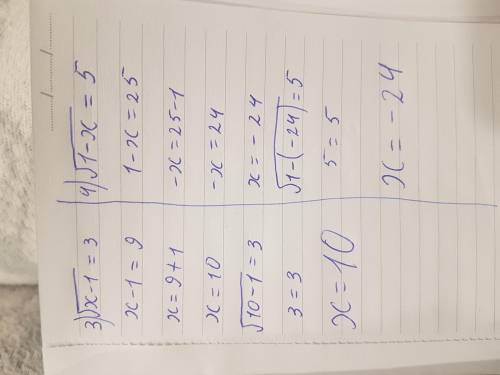 3) √x-1 = 3
x-1 = 9
x = 9+1
x = 10
√10-1 = 3
3 = 3
x = 10
4) √1-x = 5
1-x = 25
-x = 25-1
-x = 24
x = -24
√1-(-24) = 5
5 = 5
x = -24